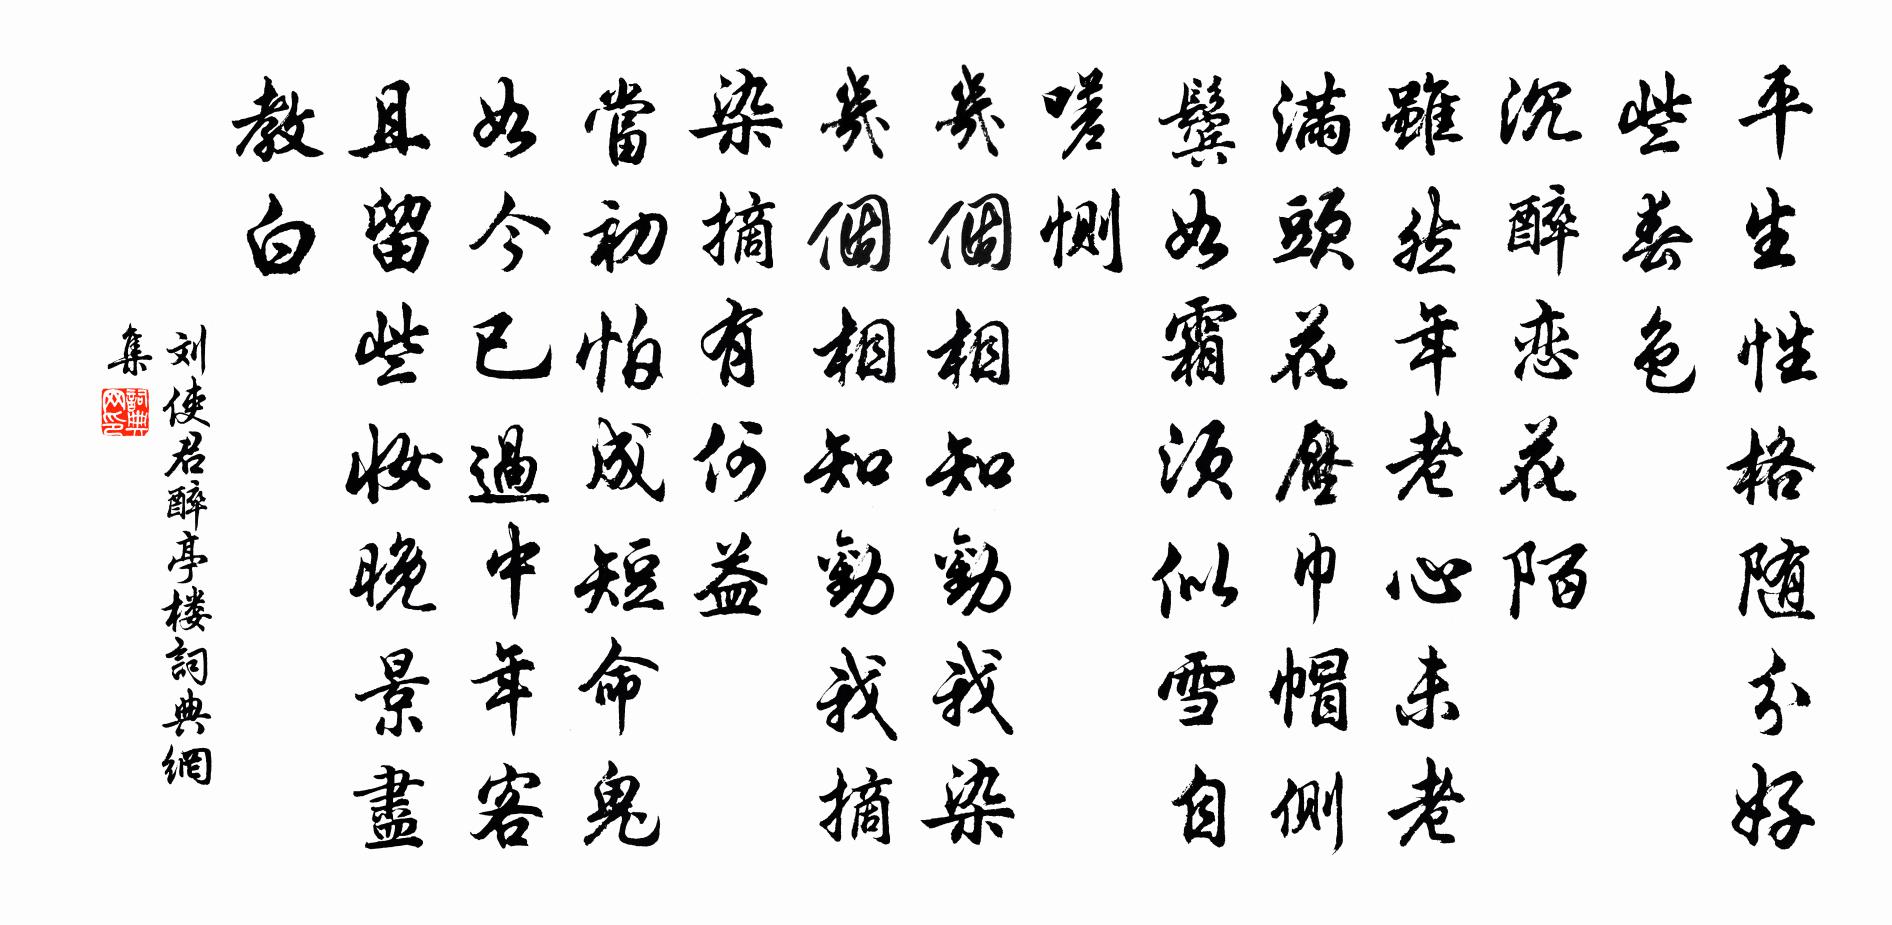 平生性格随分好
些春色
沉醉恋花陌
雖然年老心未老
满頭花壓巾帽側
鬓如霜须似雪自
嗟恻
幾個相知勸我染
幾個相知勸我摘
染摘有何益
當初怕成短命鬼
如今已過中年客
且留些妆晚景盡
教白
刘使君醉亭楼詞典網
集
詞典网印